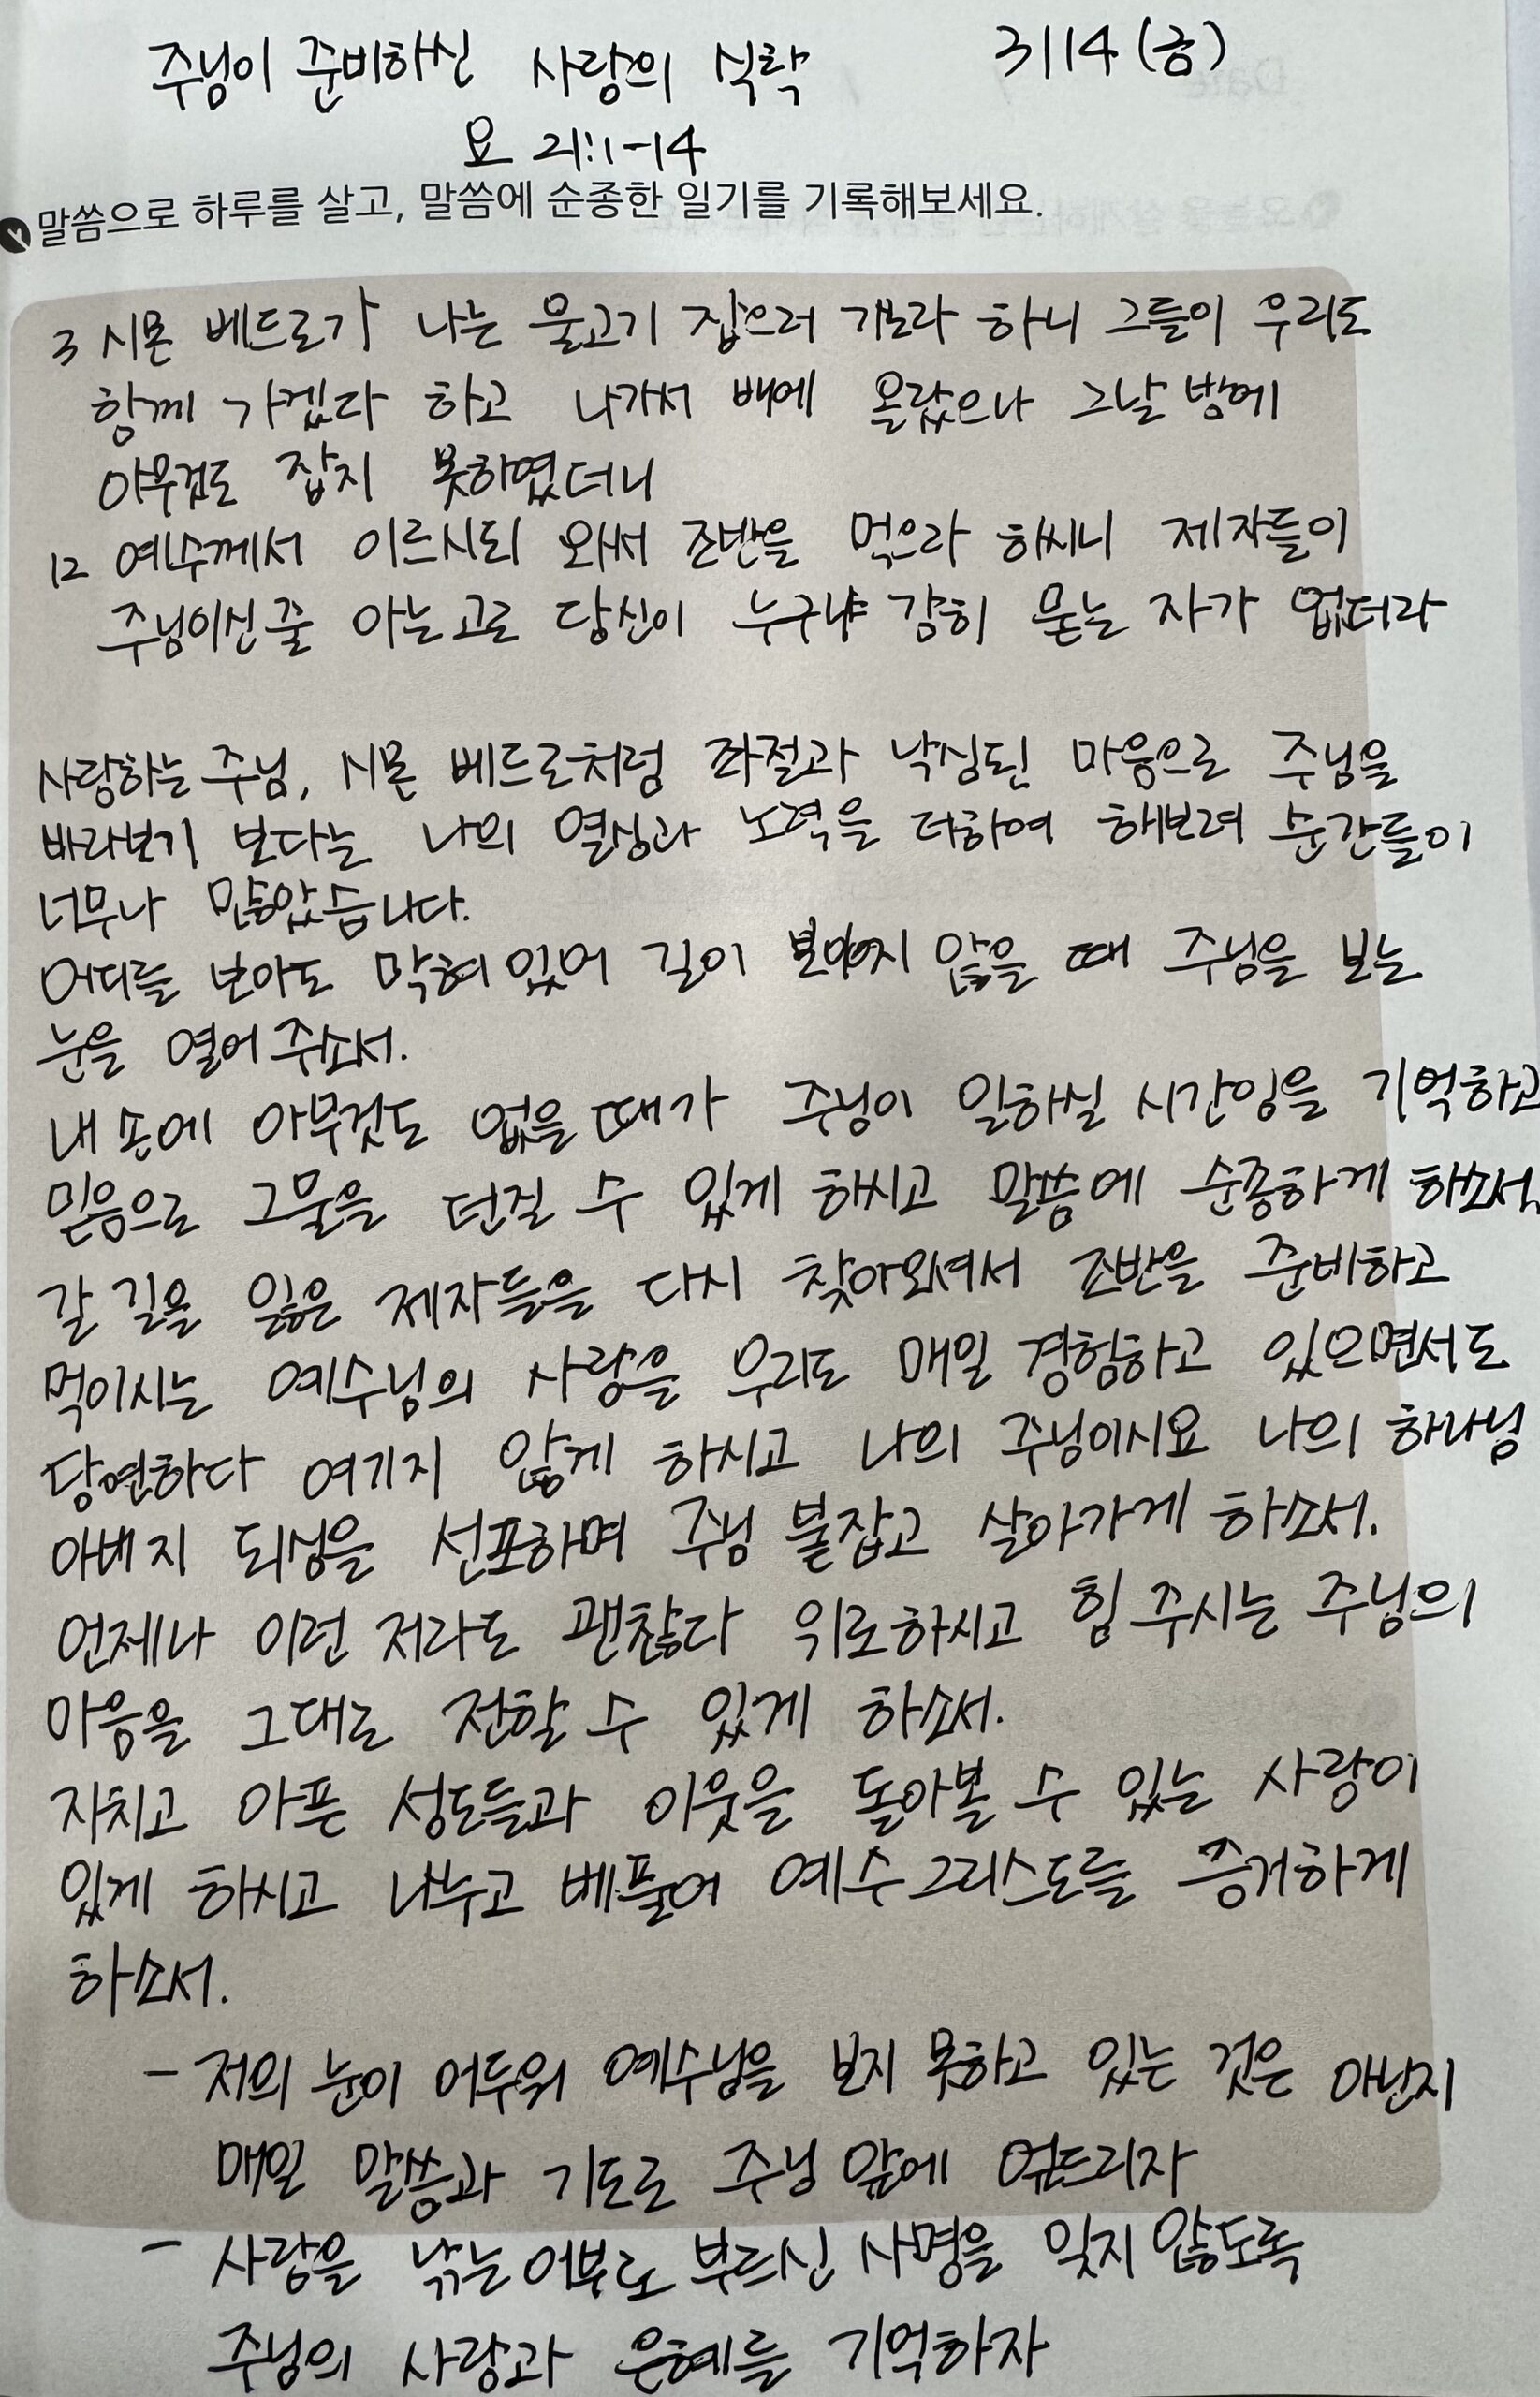 주님이 준비하신 사랑의 식탁 3/14(금)
요 21:1-14
말씀으로 하루를 살고, 말씀에 순종한 일기를 기록해보세요.
3 시몬 베드로가 나는 물고기 잡으러 가노라 하니 그들이 우리도
함께 가겠다 하고 나가서 배에 올랐으나 그날 밤에
아무것도 잡지 못하였더니
12 예수께서 이르시되 와서 조반을 먹으라 하시니 제자들이
주님이신 줄 아는 고로 당신이 누구냐 감히 묻는 자가 없더라
사랑하는 주님, 시몬 베드로처럼 좌절과 낙심된 마음으로 주님을
바라보기 보다는 나의 열심과 노력을 더하여 해보려 순간들이
너무나 많았습니다.
어디를 보아도 막혀 있어 길이 보이지 않을 때 주님을 보는
눈을 열어 주소서.
내 손에 아무것도 없을 때가 주님이 일하실 시간임을 기억하고
믿음으로 그물을 던질 수 있게 하시고 말씀에 순종하게 하소서.
갈 길을 잃은 제자들을 다시 찾아오셔서 조반을 준비하고
먹이시는 예수님의 사랑을 우리도 매일 경험하고 있으면서도
당연하다 여기지 않게 하시고 나의 주님이시요 나의 하나님
아버지 되심을 선포하며 주님 붙잡고 살아가게 하소서.
언제나 이런 저라도 괜찮다 위로하시고 힘 주시는 주님의
마음을 그대로 전할 수 있게 하소서.
지치고 아픈 성도들과 이웃을 돌아볼 수 있는 사랑이
있게 하시고 나누고 베풀어 예수 그리스도를 증거하게
하소서.
- 저의 눈이 어두워 예수님을 보지 못하고 있는 것은 아닌지
매일 말씀과 기도로 주님 앞에 엎드리자
- 사람을 낚는 어부로 부르신 사명을 잊지 않도록
주님의 사랑과 은혜를 기억하자